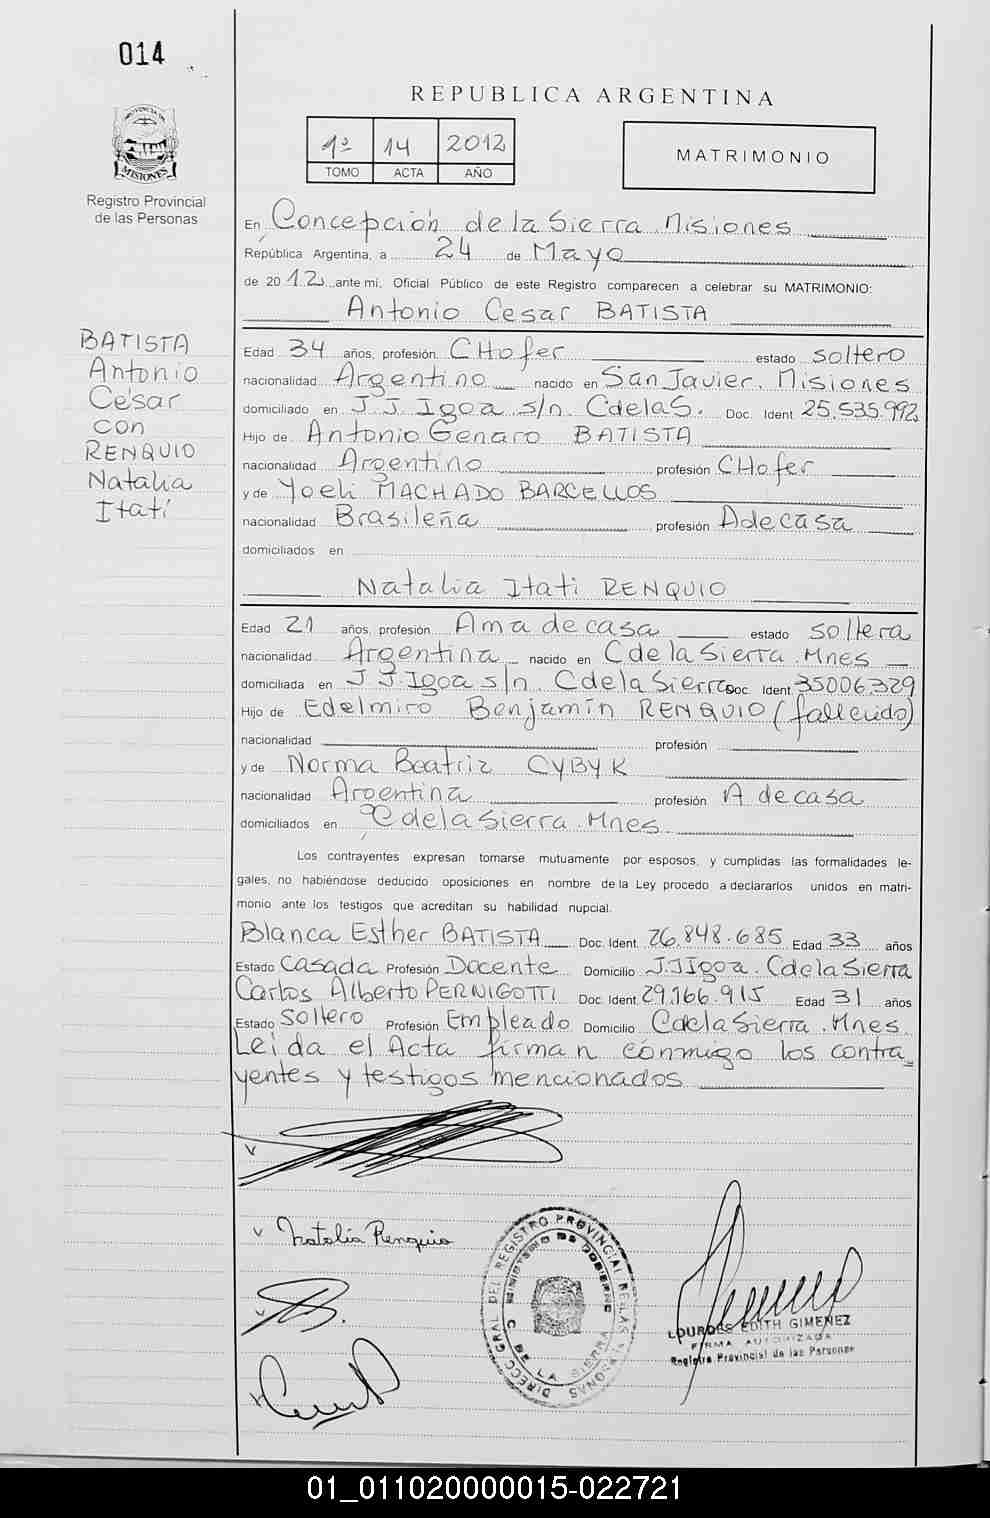 014
PROVINCIA DE
MISIONES
Registro Provincial
de las Personas
REPUBLICA ARGENTINA
1º 14 2012
TOMO ACTA AÑO
MATRIMONIO
En Concepción de la Sierra Misiones
República Argentina, a 24 de Mayo
de 2012 ante mi, Oficial Público de este Registro comparecen a celebrar su MATRIMONIO:
Antonio Cesar BATISTA
BATISTA
Antonio
César
con
RENQUIO
Natalia
Itatí
Edad 34 años, profesión CHofer estado soltero
nacionalidad Argentino nacido en San Javier. Misiones
domiciliado en J.J. Igoa s/n. CdelaS. Doc. Ident. 25.535.992
Hijo de Antonio Genaro BATISTA
nacionalidad Argentino profesión CHofer
y de Yoeli MACHADO BARCELLOS
nacionalidad Brasileña profesión Adecasa
domiciliados en
Natalia Itati RENQUIO
Edad 21 años, profesión Ama de casa estado soltera
nacionalidad Argentina nacido en Cdela Sierra. Mnes
domiciliada en J.J. Igoa s/n. Cdela Sierra Doc. Ident. 35006.329
Hijo de Edelmiro Benjamín RENQUIO (fallecido)
nacionalidad profesión
y de Norma Beatriz CYBYK
nacionalidad Argentina profesión A decasa
domiciliados en Cdela Sierra. Mnes
Los contrayentes expresan tomarse mutuamente por esposos, y cumplidas las formalidades le-
gales, no habiéndose deducido oposiciones en nombre de la Ley procedo a declararlos unidos en matri-
monio ante los testigos que acreditan su habilidad nupcial.
Blanca Esther BATISTA Doc. Ident. 26.848.685 Edad 33 años
Estado Casada Profesión Docente Domicilio J.J Igoa. Cdela Sierra
Carlos Alberto PERNIGOTTI Doc. Ident. 29.166.915 Edad 31 años
Estado Soltero Profesión Empleado Domicilio Cdela Sierra. Mnes.
Leida el Acta firman conmigo los contra
yentes y testigos mencionados
Natalia Renquio
DIRECC. GRAL. DEL REGISTRO PROVINCIAL DE LAS PERSONAS
MINISTERIO DE GOBIERNO
C. DE LA SIERRA
LOURDES EDITH GIMENEZ
FIRMA AUTORIZADA
Registro Provincial de las Personas
01_011020000015-022721